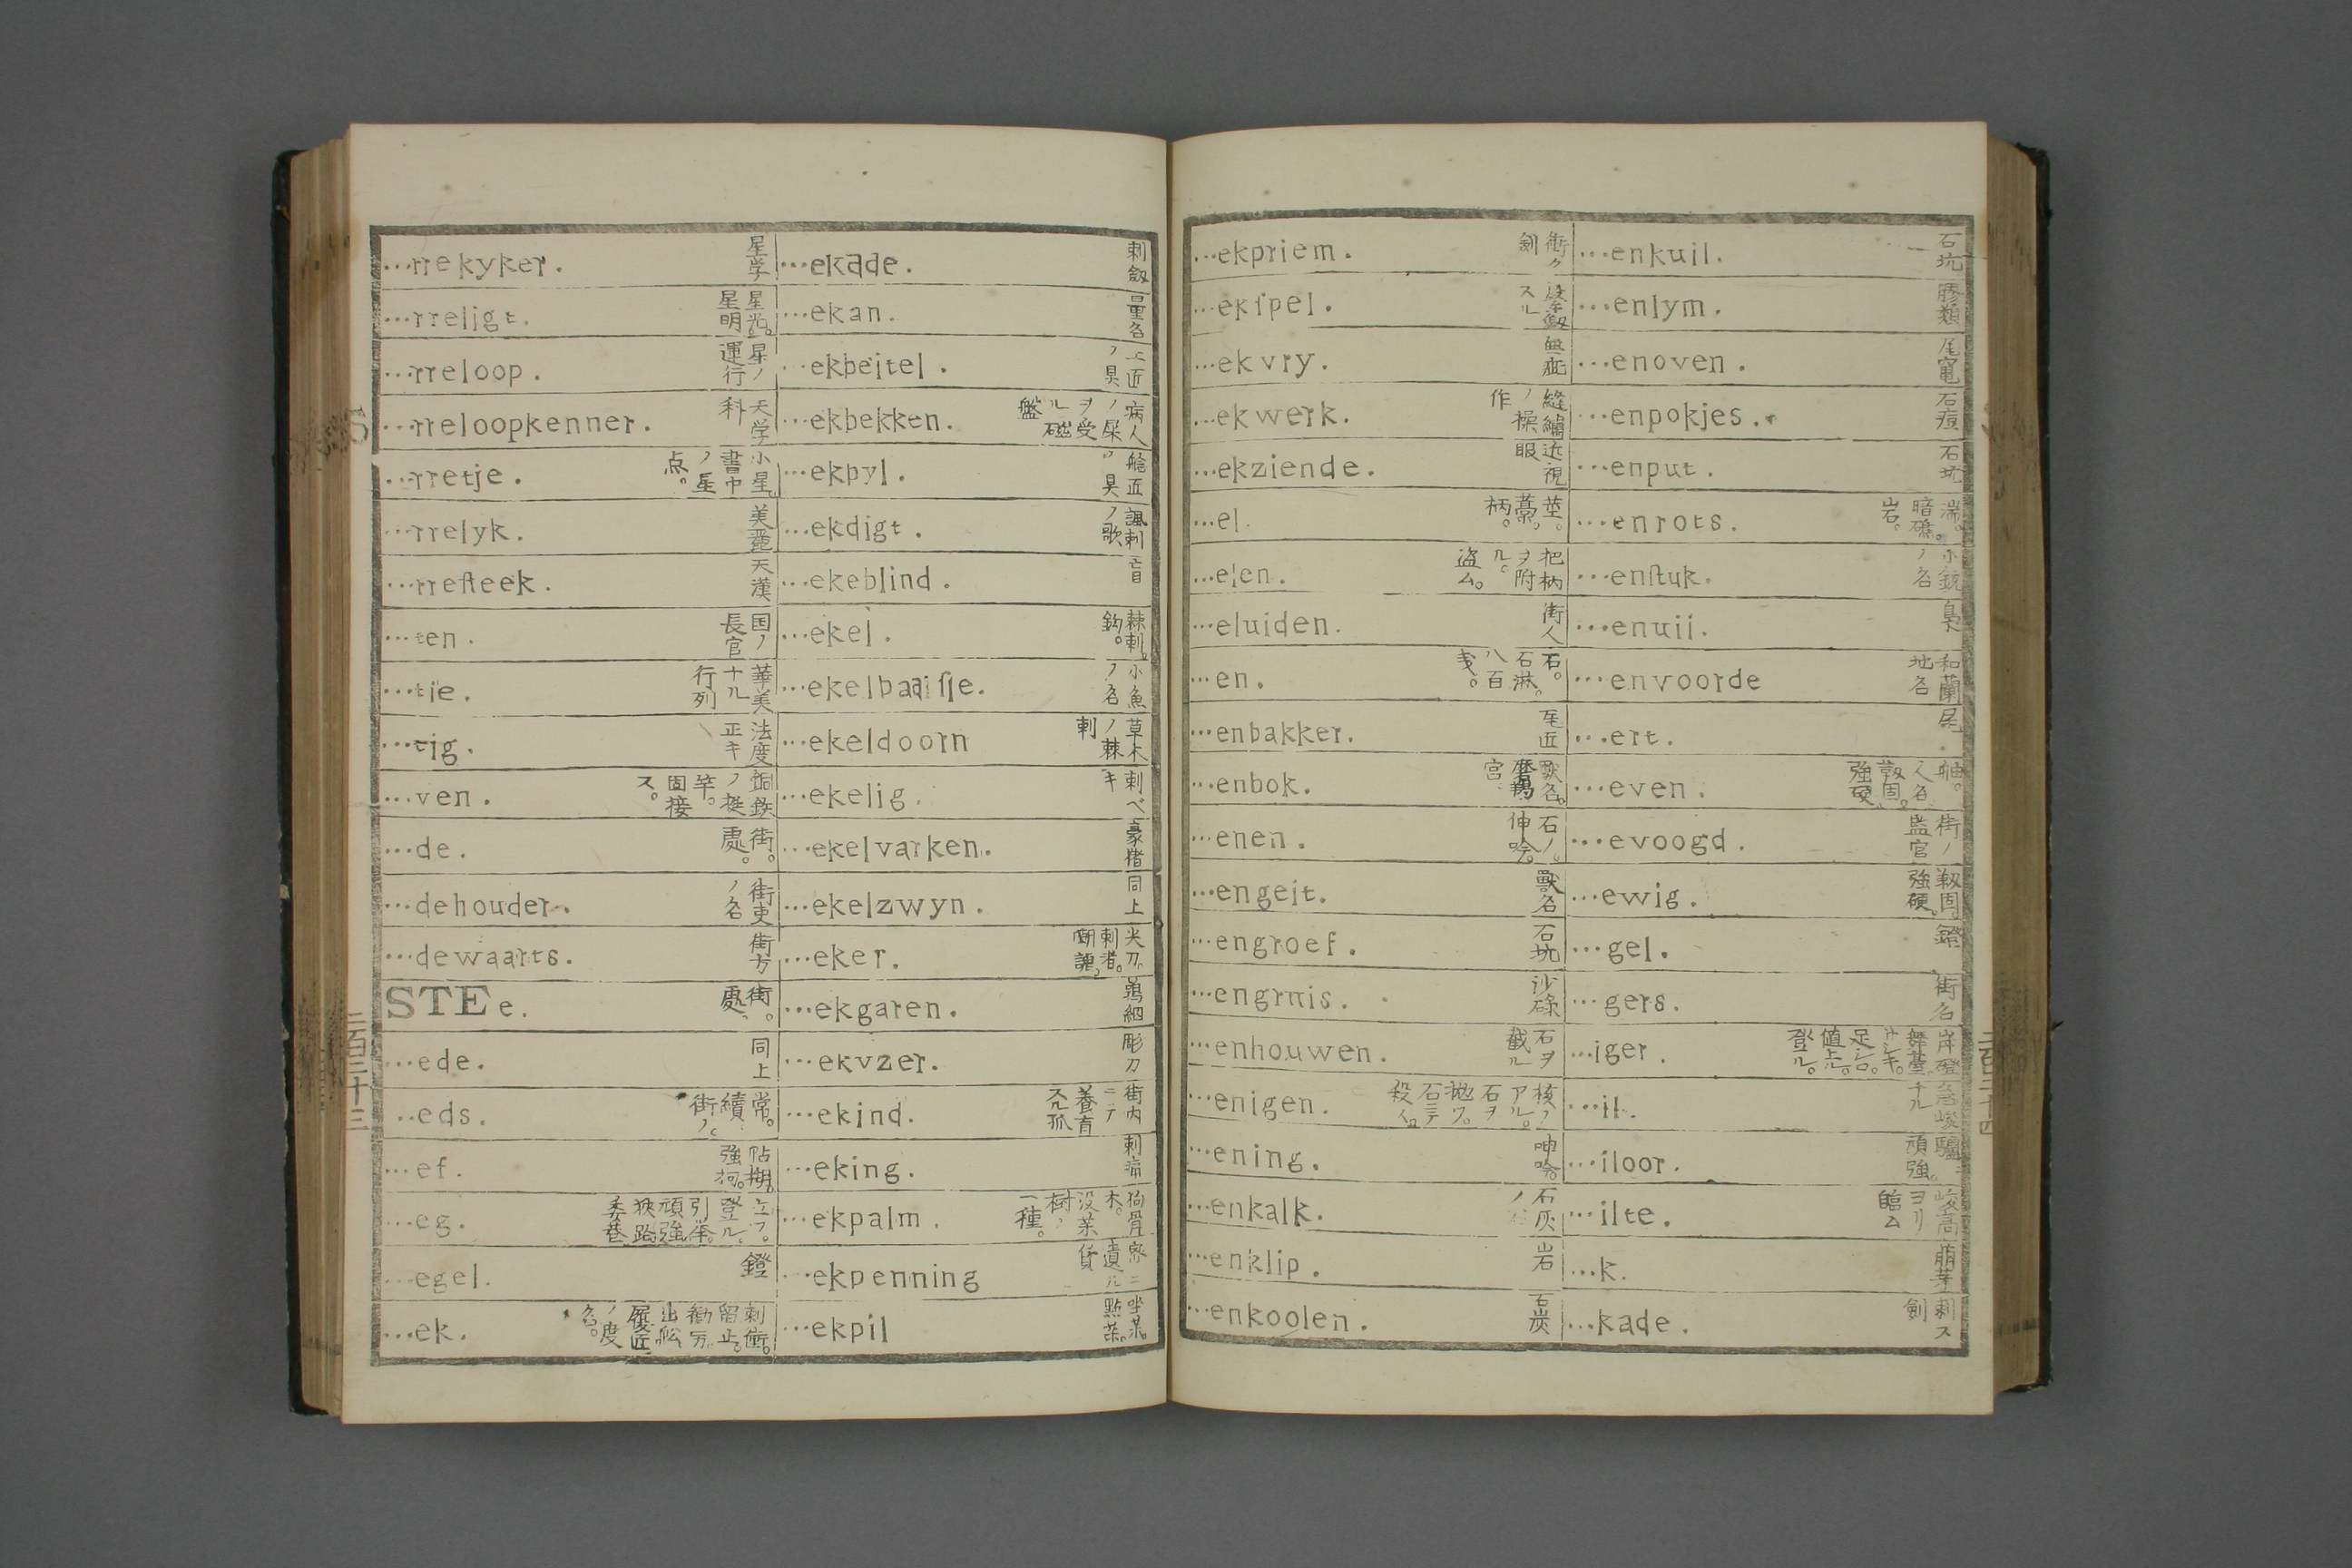 ...rrekyker. 星学
...rreligt. 星光。星明
...rreloop. 星ノ運行
...rreloopkenner. 天学科
...rretje. 小星。書中ノ星点。
...rrelyk. 美麗
...rreſteek. 天漢
...ten. 国ノ長官
...tje. 華美ナル行列
...tig. 法度正キ
...ven. 銅鉄ノ梃竿。固接ス。
...de. 街。處。
...dehouder. 街吏ノ名
...dewaarts. 街方
STEe. 街。處。
...ede. 同上
...eds. 常。續。街ノ。
...ef.
...eg. 立フ。登ル。引挙。頑強
...egel. 鐙
...ek. 名。
...ekade. 刺劔
...ekan. 量名
...ekbeitel. ノ具
...ekbekken. 病人ノ屎ヲ受ル磁盤
...ekpyl. ノ具
...ekdigt. 諷刺ノ歌
...ekeblind. 盲
...ekel. 棘刺。鈎。
...ekelbaaiſje. 小魚ノ名
...ekeldoorn 草木ノ棘刺
...ekelig. 刺ベキ
...ekelvarken. 豪猪
...ekelzwyn. 同上
...eker. 尖刀。刺者。嘲謔
...ekgaren.
...ekvzer. 彫刀
...ekind. 街内ニテ養育スル孤
...eking. 刺痛
...ekpalm. 狗骨木。没菜樹ノ一種。
...ekpenning
...ekpil 坐薬。點薬。
二百三十三
...ekpriem. 衝ク剣
...ekſpel.
...ekvry. 無疵
...ekwerk. 縫繍ノ操作
...ekziende. 近視眼
...el. 莖。藁。柄。
...elen. 把柄ヲ附ル。盗ム。
...eluiden. 街人
...en. 石。石淋。八百目。
...enbakker. 瓦匠
...enbok. 獸名。磨羯宮
...enen. 石ノ。伸吟。
...engeit. 獸名
...engroef. 石坑
...engruis. 沙礫
...enhouwen. 石ヲ截ル
...enigen. 核ノアル。石ヲ抛ツ。石ニテ殺ス。
...ening. 呻吟
...enkalk. 石灰ノ
...enklip. 岩
...enkoolen. 石炭
...enkuil. 石坑
...enlym. 膠類
...enoven. 瓦竃
...enpokjes. 石痘
...enput. 石坑
...enrots. 湍。暗礁。岩。
...enſtuk. 小銃ノ名
...enuil. 梟
...envoorde 和蘭地名
...ert. 尾
...even. 舳。人名。靱固。強硬
...evoogd. 街ノ監官
...ewig. 靱固。強硬。
...gel. 鐙
...gers. 街名
...iger. 岸磴。舞臺。足シロ。値上。登ル。
...il. 急峻ナル
...iloor. 驢ニ。頑強。
...ilte. 峻高ヨリ臨ム
...k. 萠芽
...kade. 刺ス剣
二百三十四